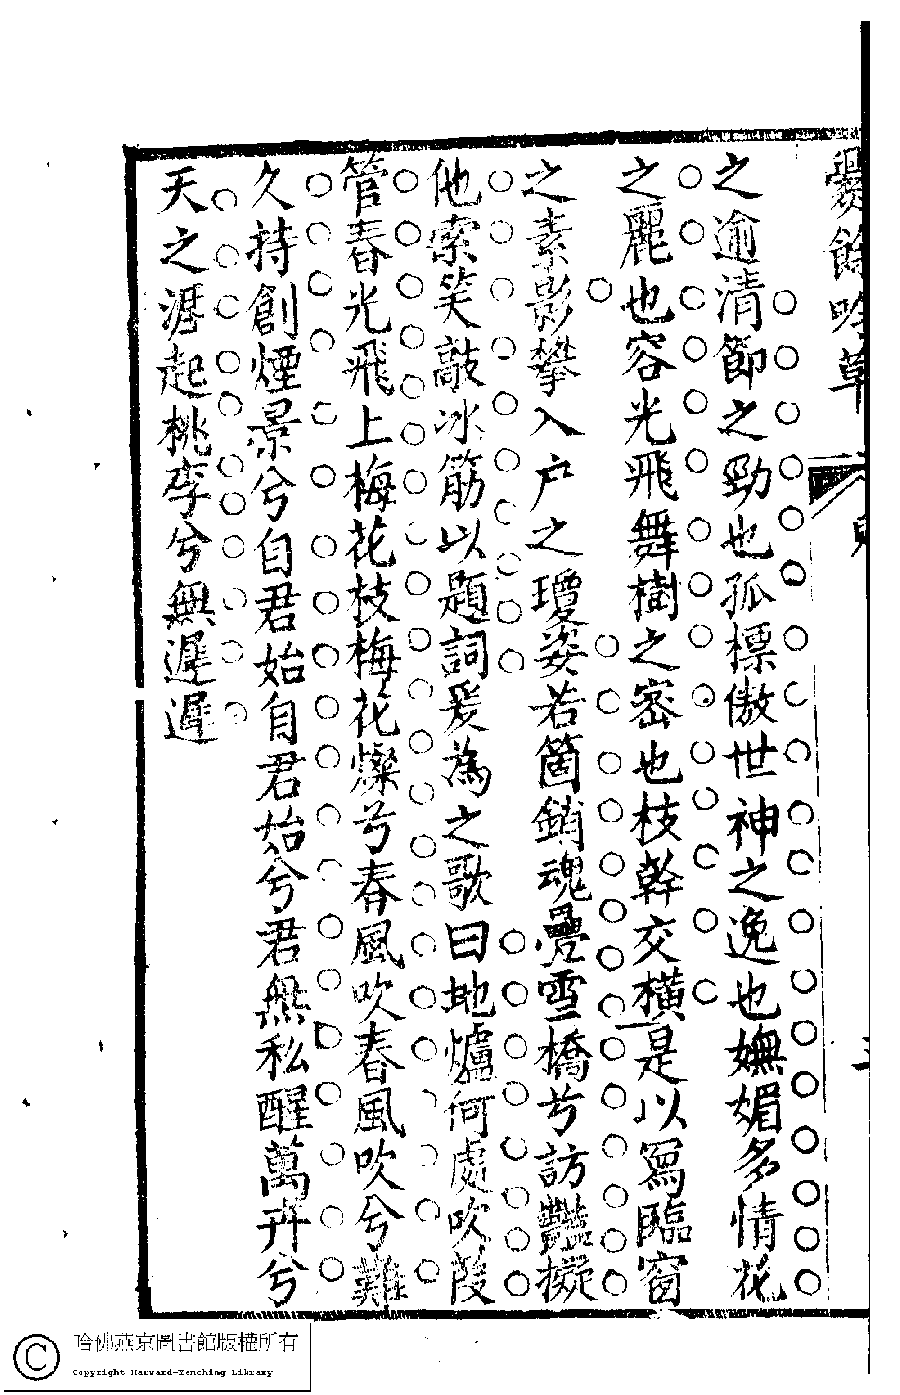 爨餘吟草
之逾清節之勁也孤標傲世神之逸也嫵媚多情花
之麗也容光飛舞樹之密也枝幹交橫是以寫臨窗
之素影攀入户之瓊姿若箇銷魂疊雪橋兮訪豔擬
他索笑敲冰筋以題詞爰為之歌曰地爐何處吹葭
管春光飛上梅花枝梅花燦兮春風吹春風吹兮難
久持創煙景兮自君始自君始兮君無私醒萬卉兮
天之涯起桃李兮無遲遲
哈佛燕京圖書館版權所有
Copyright Harvard-Yenching Library